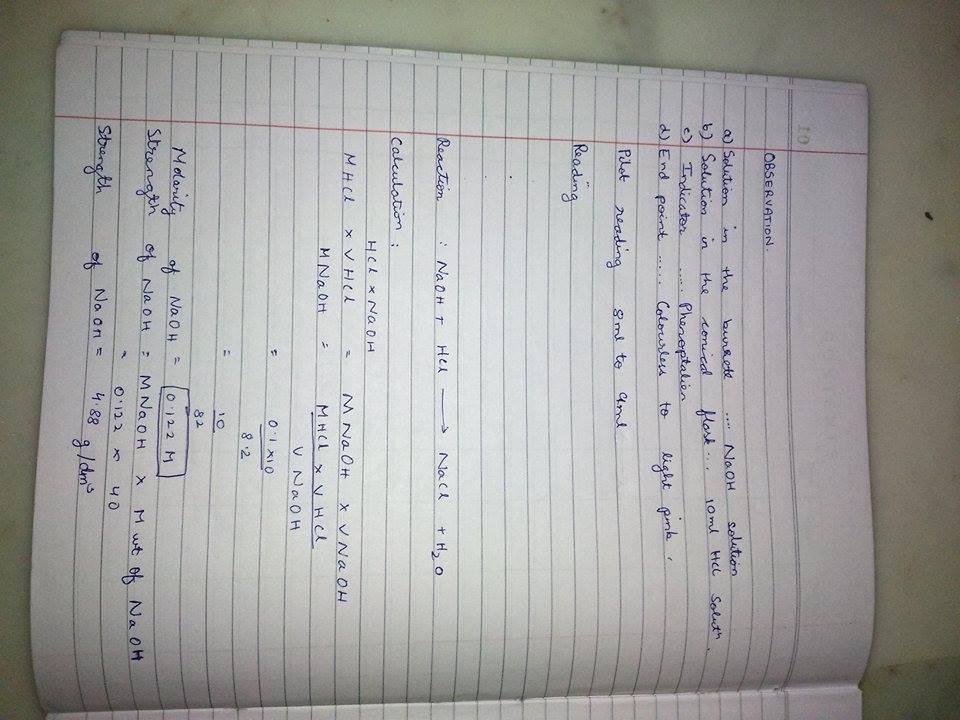 10
OBSERVATION.
a) Solution in the burette .... NaOH solution
b) Solution in the conical flask... 10ml HCl Solutn.
c) Indicator ..... Phenoptalien
d) End point ..... Colourless to light pink.
Pilot reading 8ml to 9ml
Reading
Reaction : NaOH + HCl ⟶ NaCl + H2O
Calculation :
HCl x NaOH
MHCl x VHCl = MNaOH x VNaOH
MNaOH = MHCl x VHCl
VNaOH
= 0.1x10
8.2
= 10
82
Molarity of NaOH = 0.122 M
Strength of NaOH = MNaOH x M wt of NaOH
= 0.122 x 40
Strength of NaOH = 4.88 g/dm³